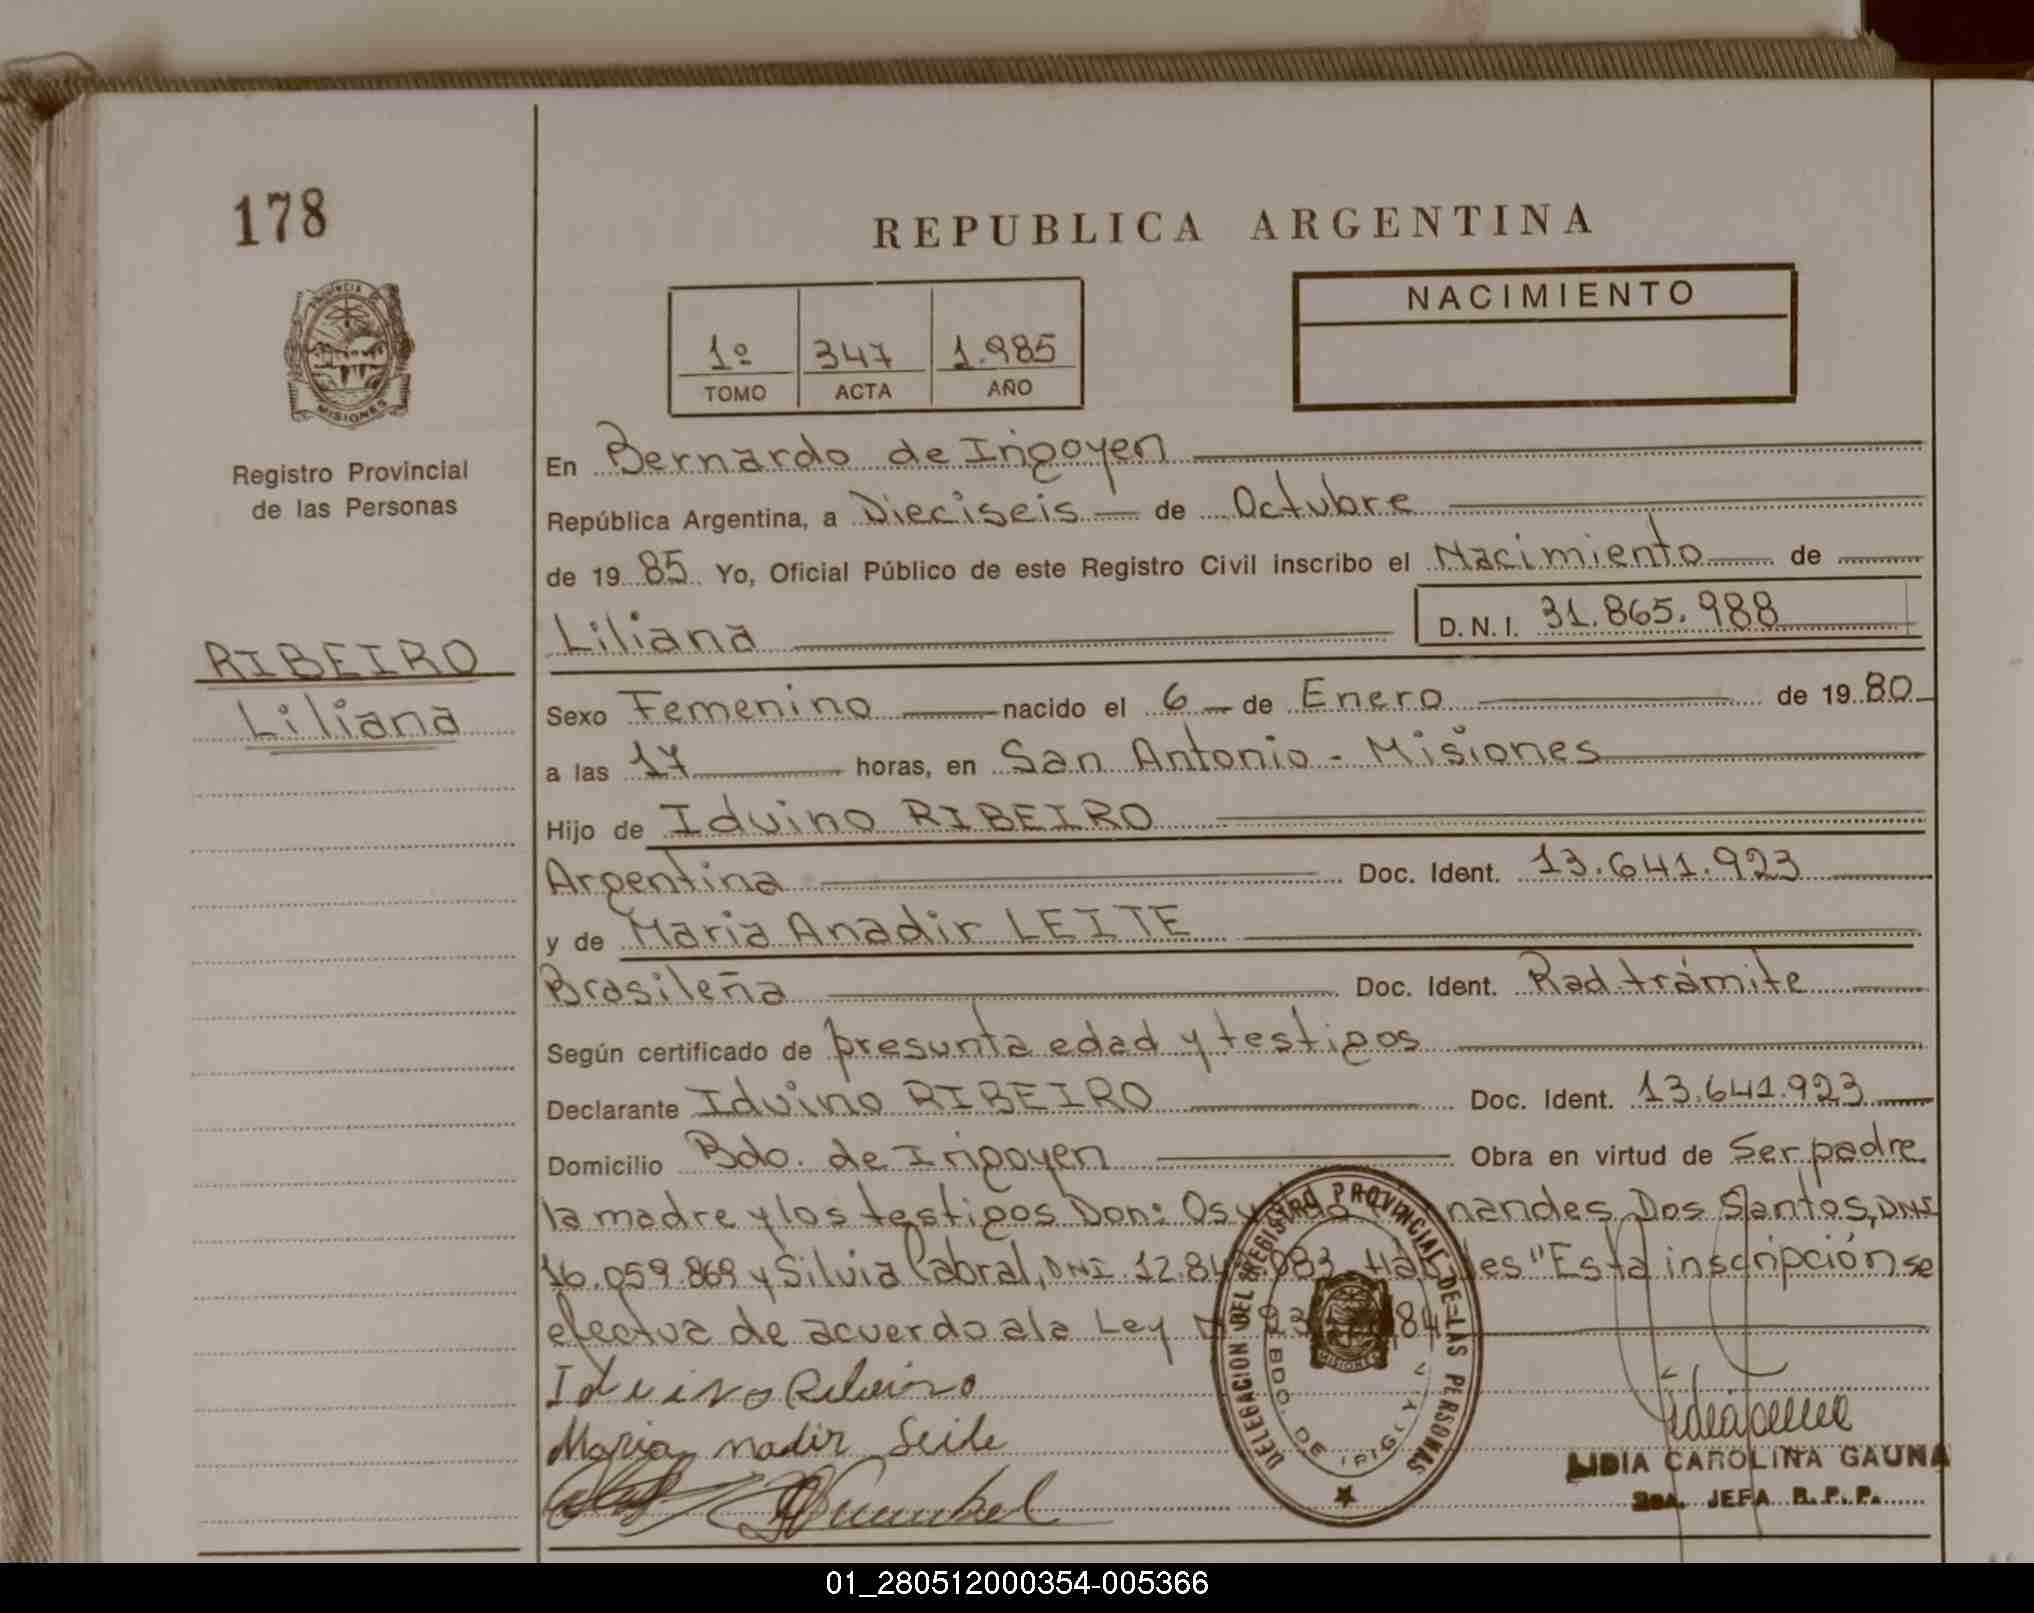 178
REPUBLICA ARGENTINA
PROVINCIA DE
MISIONES
NACIMIENTO
1º 347 1.985
TOMO ACTA AÑO
Registro Provincial
de las Personas
En Bernardo de Irigoyen
República Argentina, a Dieciseis de Octubre
de 19 85 Yo, Oficial Público de este Registro Civil inscribo el Nacimiento de
Liliana D.N.I. 31.865.988
RIBEIRO
Liliana
Sexo Femenino nacido el 6 de Enero de 19 80
a las 17 horas, en San Antonio - Misiones
Hijo de Iduino RIBEIRO
Argentina Doc. Ident. 13.641.923
y de Maria Anadir LEITE
Brasileña Doc. Ident. Rad. trámite
Según certificado de presunta edad y testigos
Declarante Iduino RIBEIRO Doc. Ident. 13.641.923
Domicilio Bdo. de Irigoyen Obra en virtud de Ser padre
la madre y los testigos Don: nandes Dos Santos, DNI
16.059.869 y Silvia Cabral, DNI. 12.84 .083 "Esta inscripción se
efectua de acuerdo a la Ley
Iduino Ribeiro
Maria nadir Leite
DELEGACION DEL REGISTRO PROVINCIAL DE LAS PERSONAS
BDO. DE IRIGOYEN
MISIONES
LIDIA CAROLINA GAUNA
2DA. JEFA R.P.P.
01_280512000354-005366